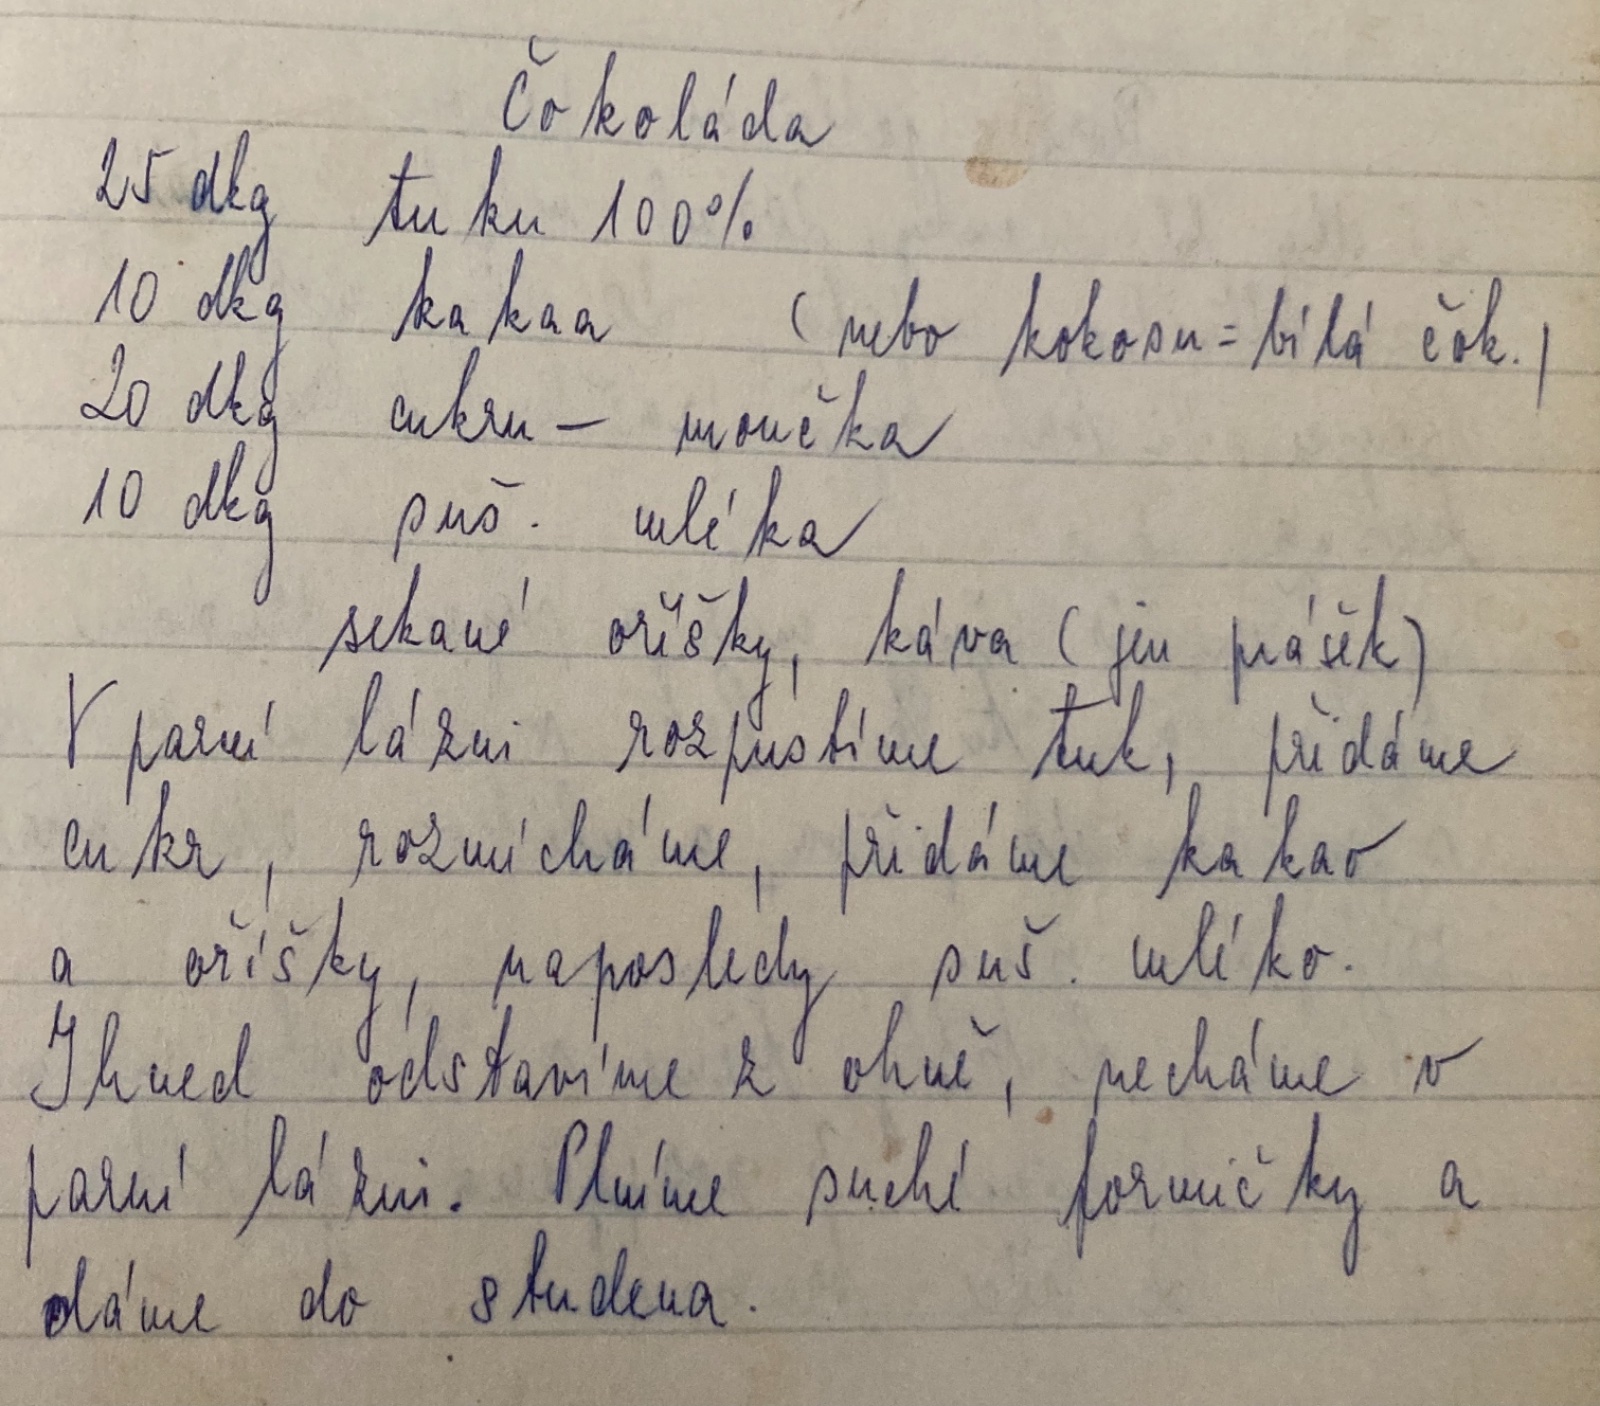 Čokoláda
25 dkg tuku 100%
10 dkg kakaa (nebo kokosu = bílá čok.)
20 dkg cukru – moučka
10 dkg suš. mléka
sekané oříšky, káva (jen prášek)
V parní lázni rozpustíme tuk, přidáme
cukr, rozmícháme, přidáme kakao
a oříšky, naposledy suš. mléko.
Ihned odstavíme z ohně, necháme v
parní lázni. Plníme suché formičky a
dáme do studena.